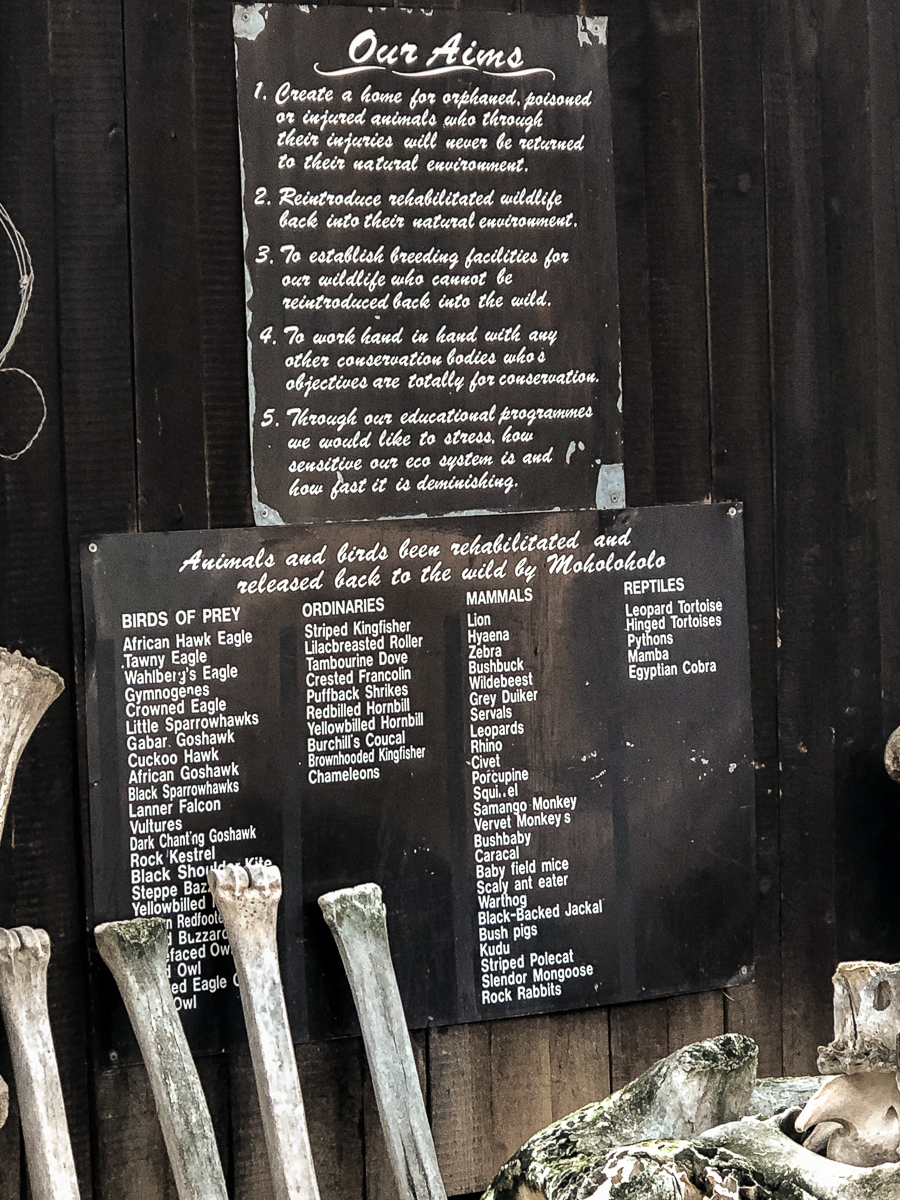 Our Aims
1. Create a home for orphaned, poisoned
or injured animals who through
their injuries will never be returned
to their natural environment.
2. Reintroduce rehabilitated wildlife
back into their natural environment.
3. To establish breeding facilities for
our wildlife who cannot be
reintroduced back into the wild.
4. To work hand in hand with any
other conservation bodies who's
objectives are totally for conservation.
5. Through our educational programmes
we would like to stress, how
sensitive our eco system is and
how fast it is deminishing.
Animals and birds been rehabilitated and
released back to the wild by Moholoholo
BIRDS OF PREY
African Hawk Eagle
Tawny Eagle
Wahlberg's Eagle
Gymnogenes
Crowned Eagle
Little Sparrowhawks
Gabar Goshawk
Cuckoo Hawk
African Goshawk
Black Sparrowhawks
Lanner Falcon
Vultures
Dark Chanting Goshawk
Rock Kestrel
Black Shoulder Kite
Steppe
Yellowbilled
Owl
Eagle
Owl
ORDINARIES
Striped Kingfisher
Lilacbreasted Roller
Tambourine Dove
Crested Francolin
Puffback Shrikes
Redbilled Hornbill
Yellowbilled Hornbill
Burchill's Coucal
Brownhooded Kingfisher
Chameleons
MAMMALS
Lion
Hyaena
Zebra
Bushbuck
Wildebeest
Grey Duiker
Servals
Leopards
Rhino
Civet
Porcupine
Squi..el
Samango Monkey
Vervet Monkeys
Bushbaby
Caracal
Baby field mice
Scaly ant eater
Warthog
Black-Backed Jackal
Bush pigs
Kudu
Striped Polecat
Slendor Mongoose
Rock Rabbits
REPTILES
Leopard Tortoise
Hinged Tortoises
Pythons
Mamba
Egyptian Cobra